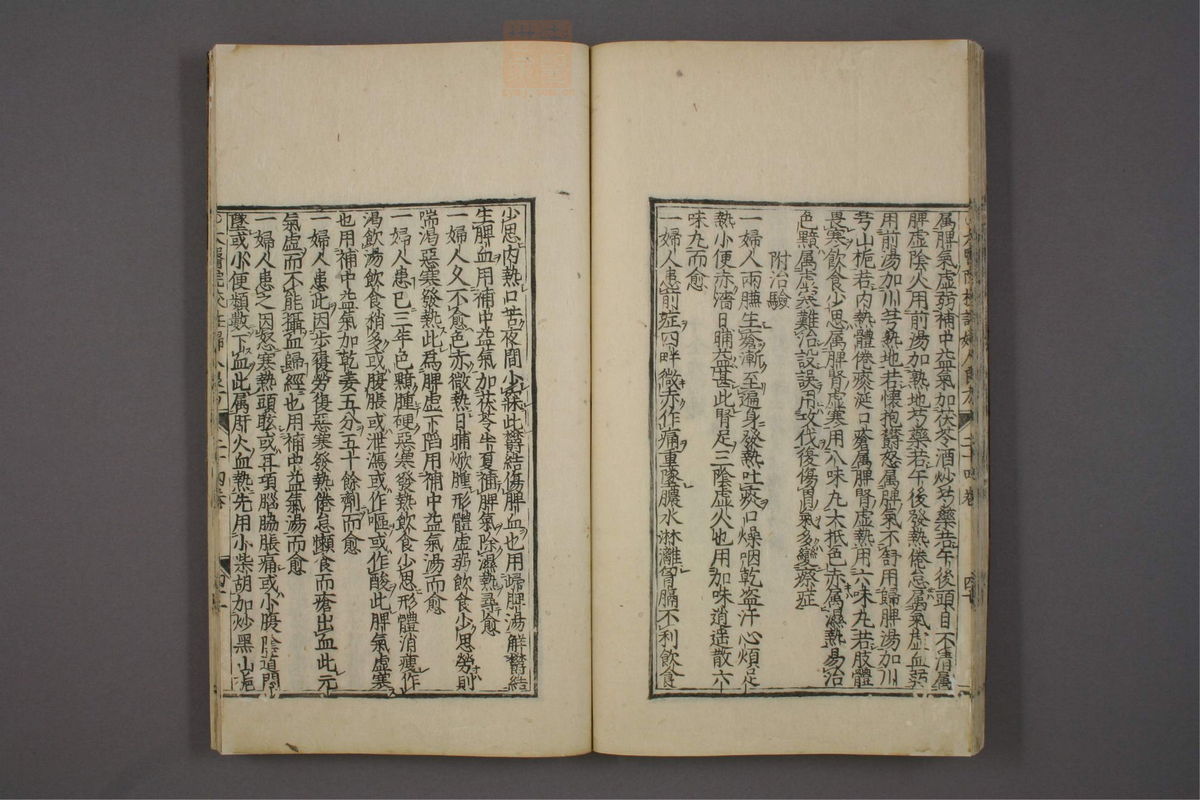 属脾氣虚弱補中益氣加茯苓酒炒芍藥若午後頭目不清属
脾虚陰火用前湯加熟地芍藥若午後發熱倦怠属氣虚血弱
用前湯加川芎熱地若懷抱欝怒属脾氣不舒用歸脾湯加川
芎山梔若内熱體倦痰涎口瘡属脾腎虚熱用六味丸若肢體
畏寒飲食少思属脾腎虚寒用八味丸大抵色赤属濕熱易治
色黯属虚寒難治設誤用攻伐復傷胃氣多變瘵症
附治驗
一婦人兩臁生瘡漸至遍身發熱吐痰口燥咽乾盗汗心煩足
熱小便赤濇日晡益甚此腎足三陰虚火也用加味逍遥散六
味丸而愈
一婦人患前症四畔微赤作痛重墜膿水淋漓胷膈不利飲食
少思内熱口苦夜間少寐此欝結傷脾血也用歸脾湯解欝結
生脾血用補中益氣加茯苓半夏補脾氣除濕熱尋愈
一婦人久不愈色赤微熱日晡焮腫形體虚弱飲食少思勞則
喘渇惡寒發熱此為脾虚下陷用補中益氣湯而愈
一婦人患已三年色黯腫硬惡寒發熱飲食少思形體消瘦作
渇飲湯飲食稍多或腹脹或泄瀉或作嘔或作酸此脾氣虚寒
也用補中益氣加乾姜五分五十餘劑而愈
一婦人患此因歩履勞復惡寒發熱倦怠懶食而瘡出血此元
氣虚而不能攝血歸經也用補中益氣湯而愈
一婦人患之因怒寒熱頭眩或耳項腦脇脹痛或小腹陰道悶
墜或小便頻數下血此属肝火血熱先用小柴胡加炒黑山梔
二十四卷